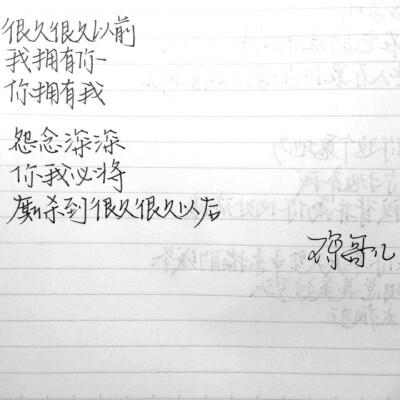 很久很久以前
我拥有你
你拥有我
怨念深深
你我必将
厮杀到很久很久以后
哥儿